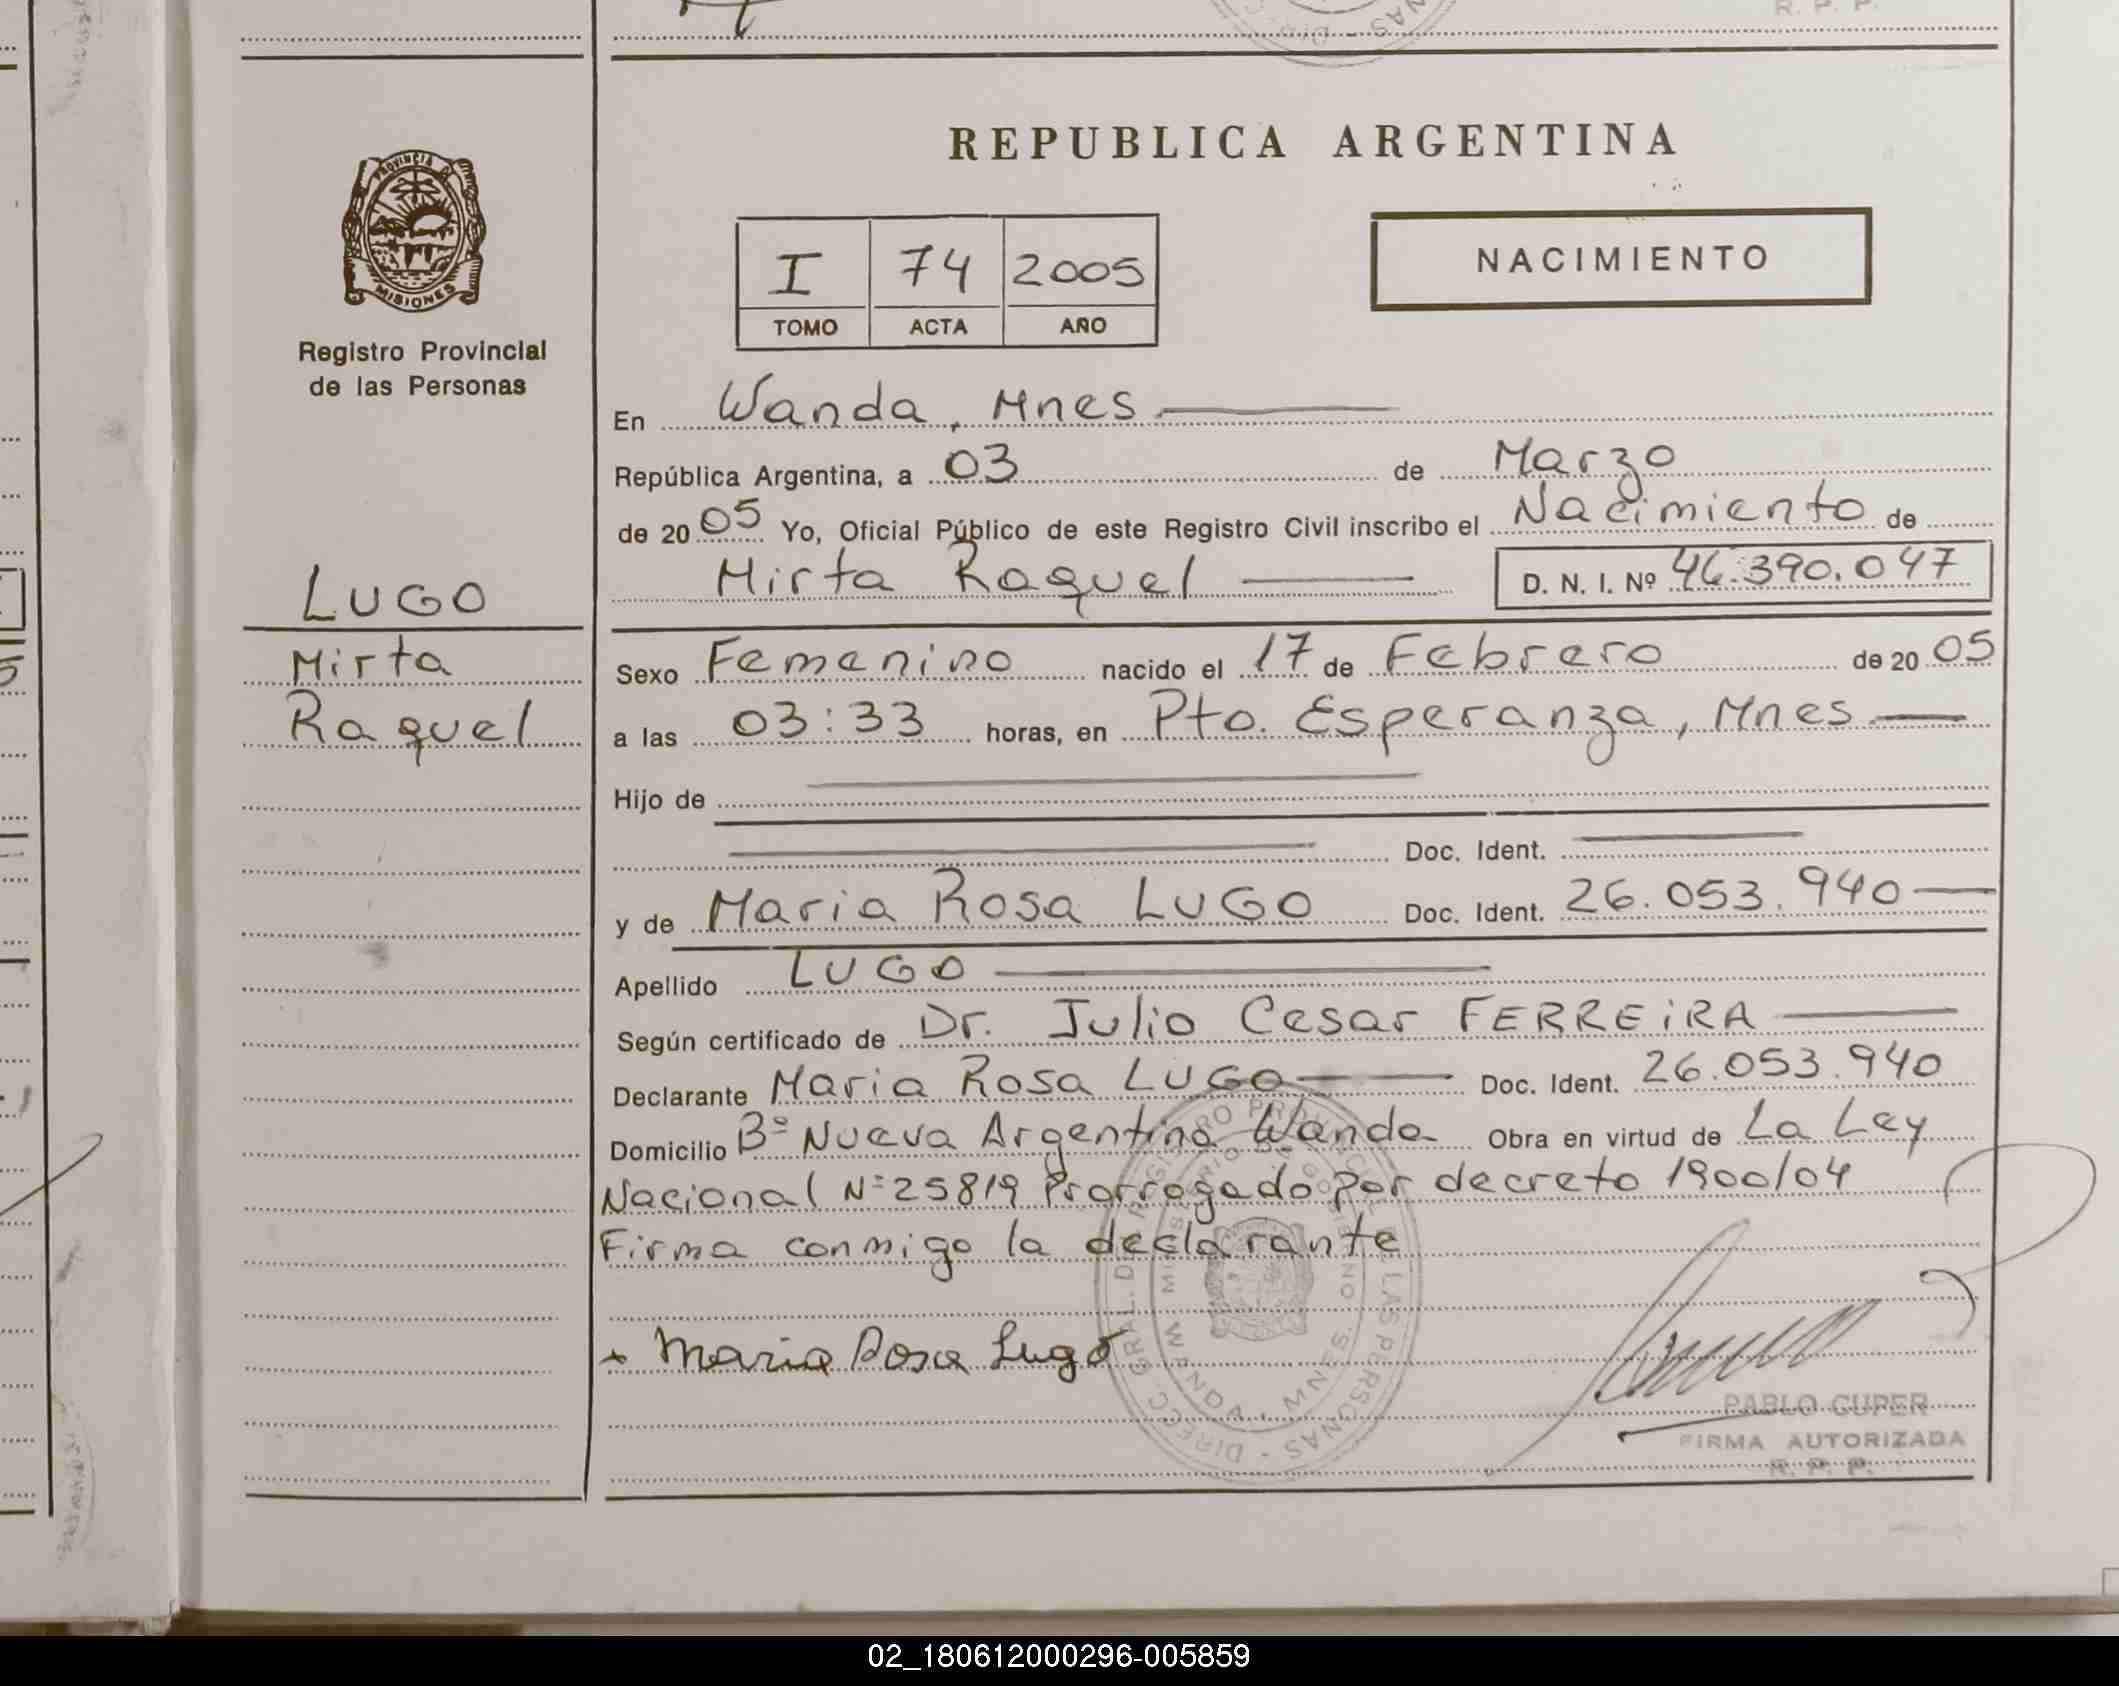 R. P. P.
REPUBLICA ARGENTINA
PROVINCIA DE
MISIONES
Registro Provincial
de las Personas
I 74 2005
TOMO ACTA AÑO
NACIMIENTO
En Wanda, Mnes
República Argentina, a 03 de Marzo
de 2005 Yo, Oficial Público de este Registro Civil inscribo el Nacimiento de
Mirta Raquel D. N. I. Nº 46.390.047
LUGO
Mirta
Raquel
Sexo Femenino nacido el 17 de Febrero de 2005
a las 03:33 horas, en Pto. Esperanza, Mnes
Hijo de
Doc. Ident.
y de Maria Rosa LUGO Doc. Ident. 26.053.940
Apellido LUGO
Según certificado de Dr. Julio Cesar FERREiRA
Declarante Maria Rosa LUGO Doc. Ident. 26.053.940
Domicilio Bº Nueva Argentina Wanda Obra en virtud de La Ley
Nacional Nº 25819 Prorrogado por decreto 1900/04
Firma conmigo la declarante
Maria Rosa Lugo
DIRECC. GRAL. DE REGISTRO PROVINCIAL DE LAS PERSONAS
MINISTERIO DE GOBIERNO
WANDA - MNES.
PABLO CUPER
FIRMA AUTORIZADA
R. P. P.
02_180612000296-005859